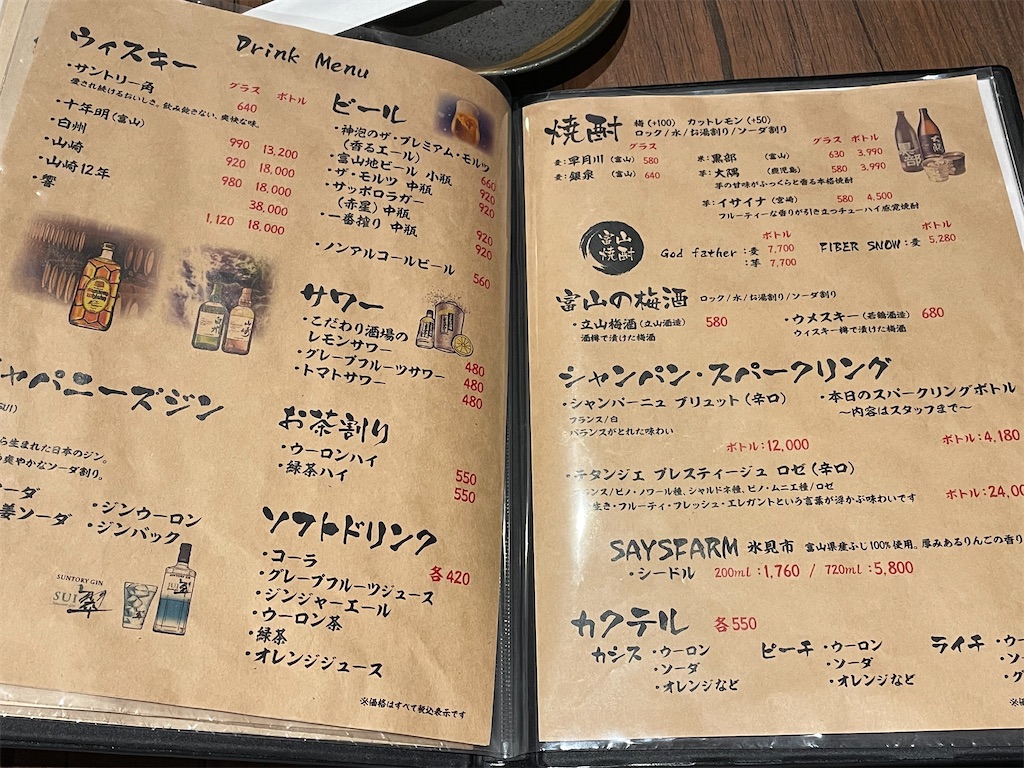 Drink Menu
ウィスキー
グラス ボトル
・サントリー角 640
愛され続けるおいしさ。飲み飽きない、爽快な味。
・十年明(富山) 990 13,200
・白州 920 18,000
・山崎 980 18,000
・山崎12年 38,000
・響 1,120 18,000
ャパニーズジン
SUI)
ら生まれた日本のジン。
爽やかなソーダ割り。
ーダ
姜ソーダ
・ジンウーロン
・ジンバック
SUNTORY GIN
SUI 翠
ビール
・神泡のザ・プレミアム・モルツ
(香るエール) 660
・富山地ビール 小瓶 920
・ザ・モルツ 中瓶 920
・サッポロラガー
(赤星) 中瓶 920
・一番搾り 中瓶 920
・ノンアルコールビール 560
サワー
・こだわり酒場の
レモンサワー 480
・グレープフルーツサワー 480
・トマトサワー 480
お茶割り
・ウーロンハイ 550
・緑茶ハイ 550
ソフトドリンク
各420
・コーラ
・グレープフルーツジュース
・ジンジャーエール
・ウーロン茶
・緑茶
・オレンジジュース
※価格はすべて税込表示です
焼酎
梅(+100) カットレモン(+50)
ロック/水/お湯割り/ソーダ割り
グラス
麦:早月川(富山) 580
麦:銀泉(富山) 640
グラス ボトル
米:黒部(富山) 630 3,990
芋:大隅(鹿児島) 580 3,990
芋の甘味がふっくらと香る本格焼酎
芋:イサイナ(宮崎) 580 4,500
フルーティーな香りが引き立つチューハイ感覚焼酎
富山
焼酎
ボトル
God father:麦 7,700
:芋 7,700
ボトル
FIBER SNOW:麦 5,280
富山の梅酒 ロック/水/お湯割り/ソーダ割り
・立山梅酒(立山酒造) 580
酒樽で漬けた梅酒
・ウメスキー(若鶴酒造) 680
ウィスキー樽で漬けた梅酒
シャンパン・スパークリング
・シャンパーニュ ブリュット(辛口)
フランス/白
バランスがとれた味わい
ボトル:12,000
・本日のスパークリングボトル
〜内容はスタッフまで〜
ボトル:4,180
・テタンジェ プレスティージュ ロゼ(辛口)
ンス/ピノ・ノワール種、シャルドネ種、ピノ・ムニエ種/ロゼ
生き・フルーティ・フレッシュ・エレガントという言葉が浮かぶ味わいです
ボトル:24,00
SAYSFARM 氷見市 富山県産ふじ100%使用。厚みあるりんごの香り
・シードル 200ml:1,760 / 720ml:5,800
カクテル 各550
カシス ・ウーロン
・ソーダ
・オレンジなど
ピーチ ・ウーロン
・ソーダ
・オレンジなど
ライチ ・ウー
・ソ
・グ
※価